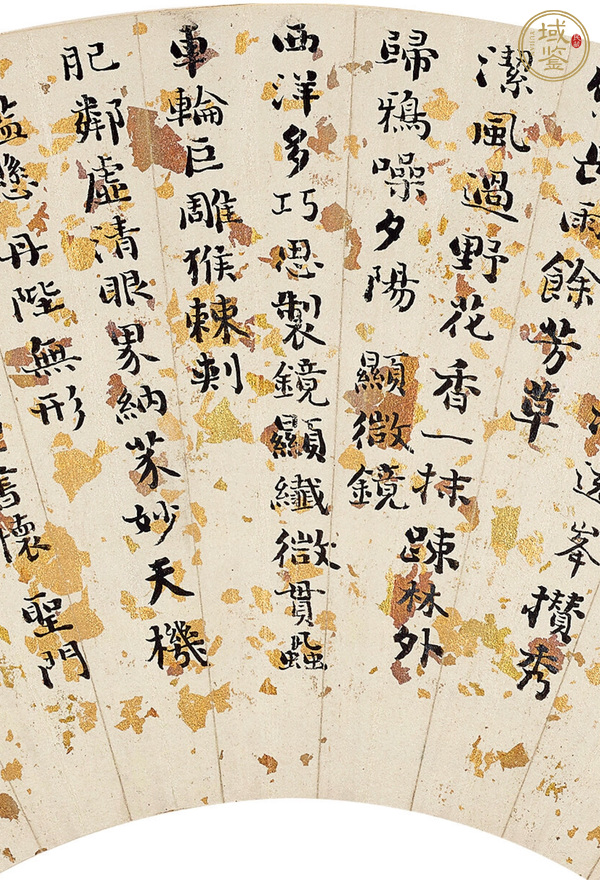 峯攢秀
雨餘芳草
潔風過野花香一抹疎林外
歸鴉噪夕陽 顯微鏡
西洋多巧思製鏡顯纖微貫蝨
車輪巨雕猴棘刺
肥鄰虛清眼界納芥妙天機
懸丹陛無形
舊懷 聖門
域鉴